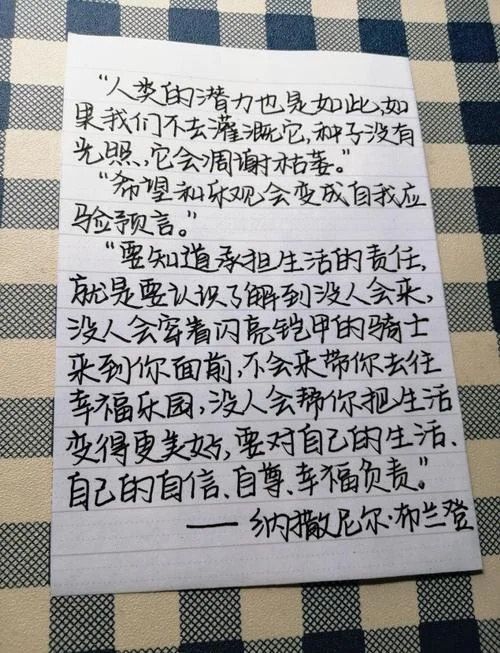 “人类的潜力也是如此,如
果我们不去灌溉它,种子没有
光照,它会凋谢枯萎。”
“希望和乐观会变成自我应
验预言。”
“要知道承担生活的责任,
就是要认识了解到没人会来,
没人会穿着闪亮铠甲的骑士
来到你面前,不会来带你去往
幸福乐园,没人会帮你把生活
变得更美好,要对自己的生活、
自己的自信、自尊、幸福负责。”
——纳撒尼尔·布兰登